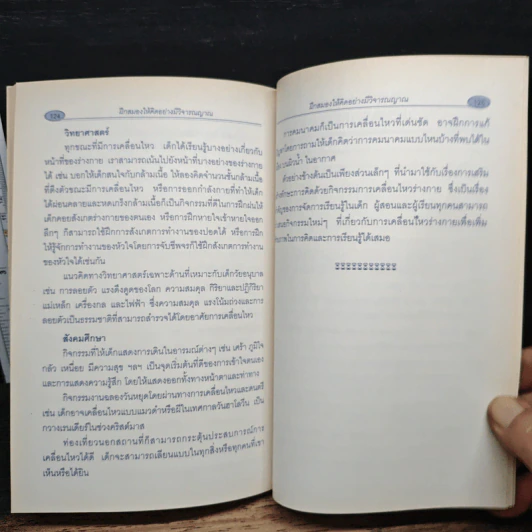 124
ฝึกสมองให้คิดอย่างมีวิจารณญาณ
วิทยาศาสตร์
ทุกขณะที่มีการเคลื่อนไหว เด็กได้เรียนรู้บางอย่างเกี่ยวกับ
หน้าที่ของร่างกาย เราสามารถเน้นไปยังหน้าที่บางอย่างของร่างกาย
ได้ เช่น บอกให้เด็กสนใจกับกล้ามเนื้อ ให้ลองคิดจำนวนชั้นกล้ามเนื้อ
ที่ดึงตัวขณะมีการเคลื่อนไหว หรือการออกกำลังกายที่ทำให้เด็ก
ได้ผ่อนคลายและหดเกร็งกล้ามเนื้อก็เป็นกิจกรรมที่ดีในการฝึกฝนให้
เด็กคอยสังเกตร่างกายของตนเอง หรือการฝึกหายใจเข้าหายใจออก
ลึกๆ ก็สามารถใช้ฝึกการสังเกตการทำงานของปอดได้ หรือการฝึก
ให้รู้จักการทำงานของหัวใจโดยการจับชีพจรก็ใช้ฝึกสังเกตการทำงาน
ของหัวใจได้เช่นกัน
แนวคิดทางวิทยาศาสตร์เฉพาะด้านที่เหมาะกับเด็กวัยอนุบาล
เช่น การลอยตัว แรงดึงดูดของโลก ความสมดุล กิริยาและปฏิกิริยา
แม่เหล็ก เครื่องกล และไฟฟ้า ซึ่งความสมดุล แรงโน้มถ่วงและการ
ลอยตัวเป็นธรรมชาติที่สามารถสำรวจได้โดยอาศัยการเคลื่อนไหว
สังคมศึกษา
กิจกรรมที่ให้เด็กแสดงการเดินในอารมณ์ต่างๆ เช่น เศร้า ภูมิใจ
กลัว เหนื่อย มีความสุข ฯลฯ เป็นจุดเริ่มต้นที่ดีของการเข้าใจตนเอง
และการแสดงความรู้สึก โดยให้แสดงออกทั้งทางหน้าตาและท่าทาง
กิจกรรมงานฉลองวันหยุดโดยผ่านทางการเคลื่อนไหวและดนตรี
เช่น เด็กอาจเคลื่อนไหวแบบแมวดำหรือผีในเทศกาลวันฮาโลวีน เป็น
กวางเรนเดียร์ในช่วงคริสต์มาส
ท่องเที่ยวนอกสถานที่ก็สามารถกระตุ้นประสบการณ์การ
เคลื่อนไหวได้ดี เด็กจะสามารถเลียนแบบในทุกสิ่งหรือทุกคนที่เขา
เห็นหรือได้ยิน
ฝึกสมองให้คิดอย่างมีวิจารณญาณ
125
การคมนาคมก็เป็นการเคลื่อนไหวที่เด่นชัด อาจฝึกการแก้
โดยการถามให้เด็กคิดว่าการคมนาคมแบบไหนบ้างที่พบได้ใน
ผิวน้ำ ในอากาศ
ตัวอย่างข้างต้นเป็นเพียงส่วนเล็กๆ ที่นำมาใช้กับเรื่องการเสริม
ทักษะการคิดด้วยกิจกรรมการเคลื่อนไหวร่างกาย ซึ่งเป็นเรื่อง
ของการจัดการเรียนรู้ในเด็ก ผู้สอนและผู้เรียนทุกคนสามารถ
กิจกรรมใหม่ๆ ที่เกี่ยวกับการเคลื่อนไหวร่างกายเพื่อเพิ่ม
ในการคิดและการเรียนรู้ได้เสมอ